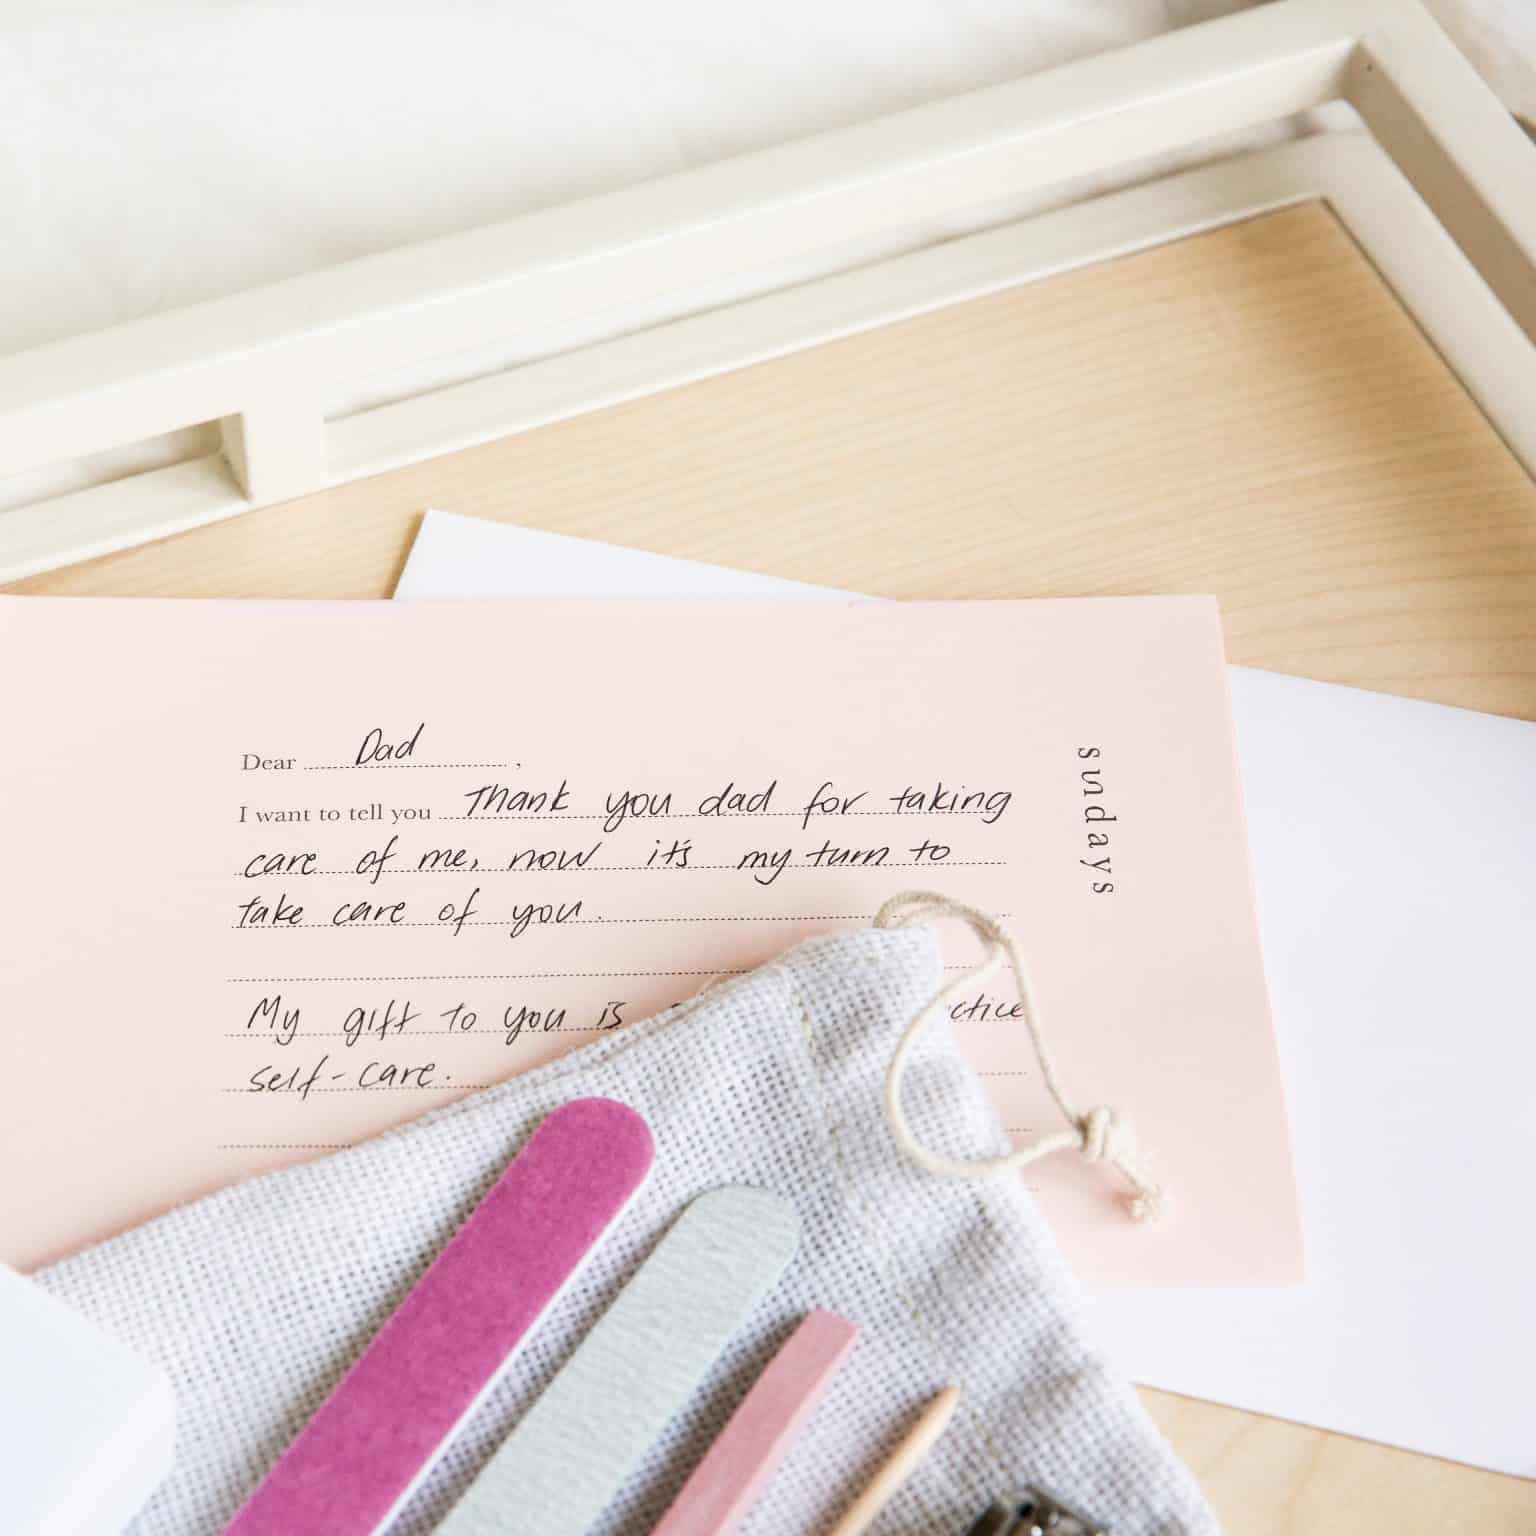 Dear Dad,
I want to tell you Thank you dad for taking
care of me, now it's my turn to
take care of you.
My gift to you is
self-care.
sundays